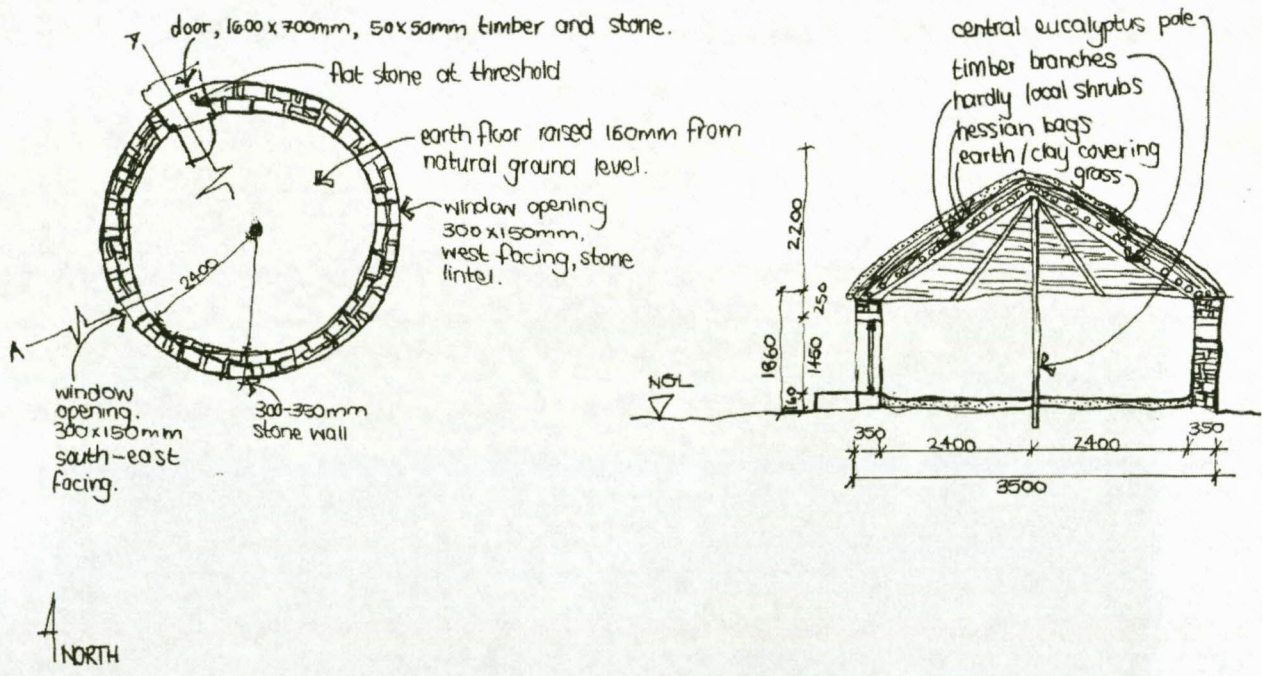 door, 1600x700mm, 50x50mm timber and stone.
flat stone at threshold
earth floor raised 160mm from
natural ground level.
window opening
300x150mm,
west facing, stone
lintel.
2400
A
A
window
opening.
300x150mm
south-east
facing.
300-350mm
stone wall
NORTH
central eucalyptus pole
timber branches
hardly local shrubs
hessian bags
earth/clay covering
grass
2200
250
1860
1450
160
NGL
350
2400
2400
350
3500